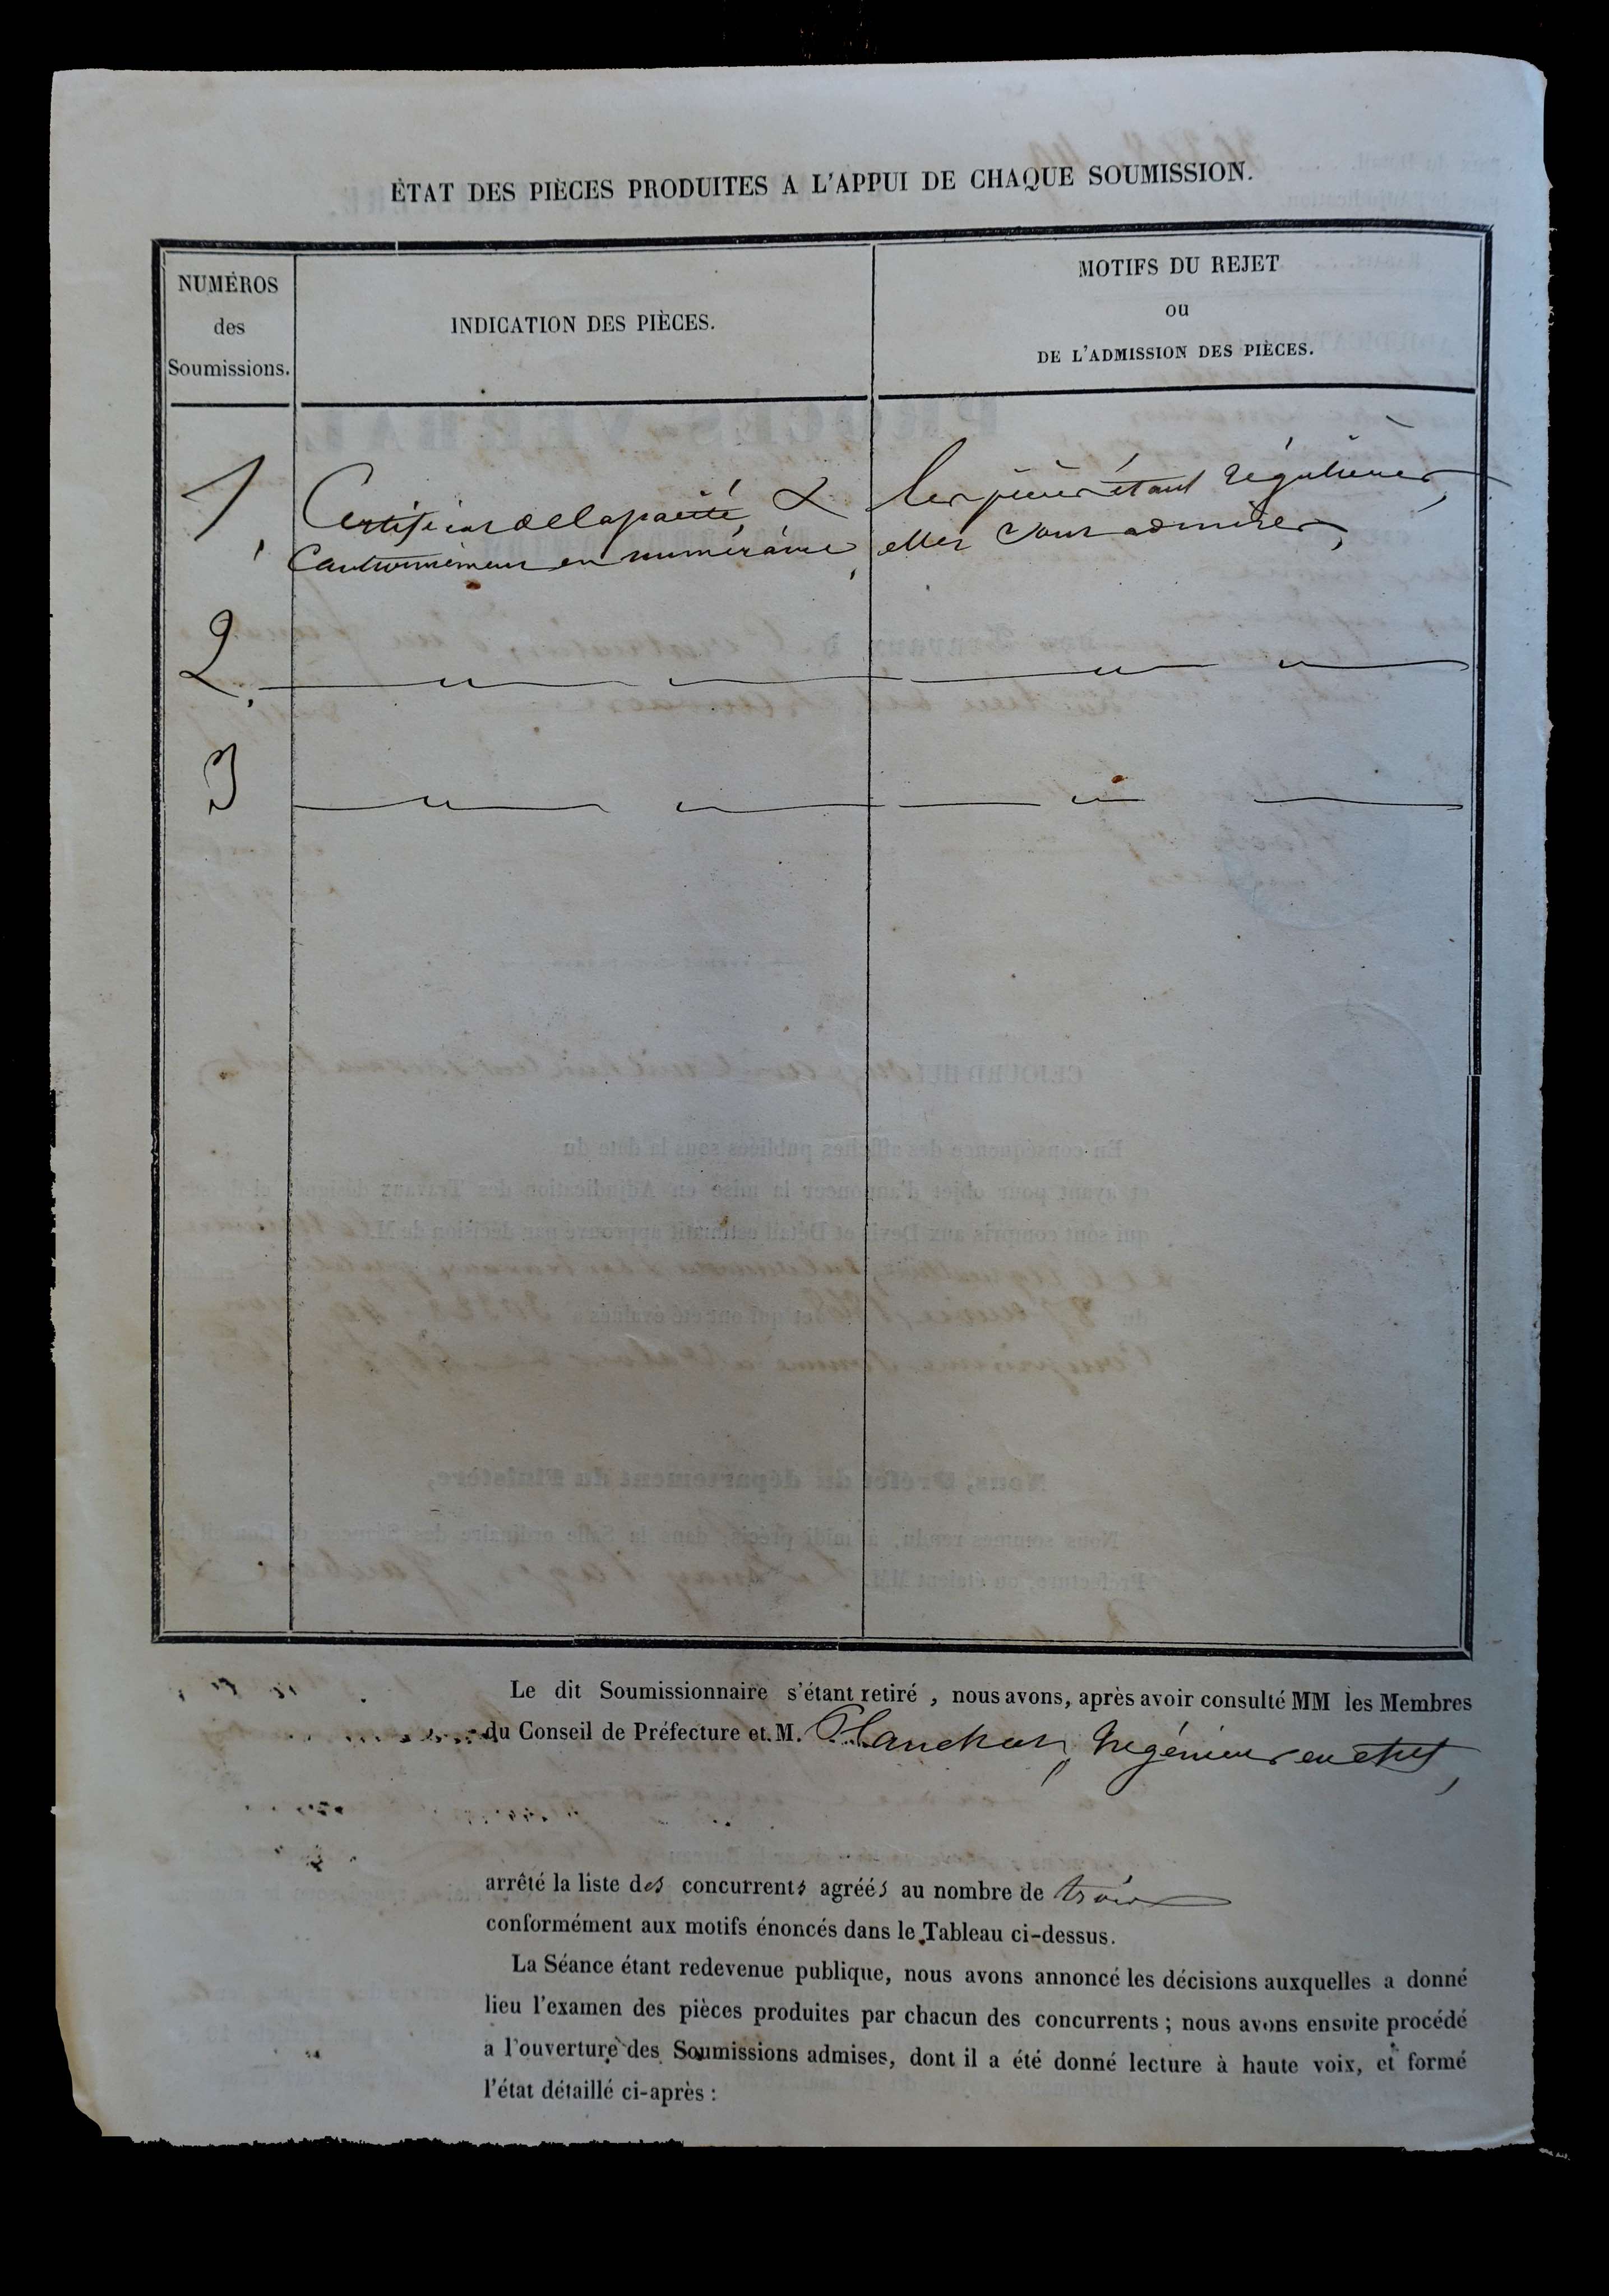 ÉTAT DES PIÈCES PRODUITES A L'APPUI DE CHAQUE SOUMISSION.
NUMÉROS
des
Soumissions.
INDICATION DES PIÈCES.
MOTIFS DU REJET
ou
DE L'ADMISSION DES PIÈCES.
1, Certificat de Capacité, & les pièces étant régulières,
Cautionnement en numéraire, elles sont admises,
2,
3
Le dit Soumissionnaire s'étant retiré , nous avons, après avoir consulté MM les Membres
du Conseil de Préfecture et M. Planchat, Ingénieur en chef,
arrêté la liste des concurrents agréés au nombre de trois
conformément aux motifs énoncés dans le Tableau ci-dessus.
La Séance étant redevenue publique, nous avons annoncé les décisions auxquelles a donné
lieu l'examen des pièces produites par chacun des concurrents ; nous avons ensuite procédé
a l'ouverture des Soumissions admises, dont il a été donné lecture à haute voix, et formé
l'état détaillé ci-après :